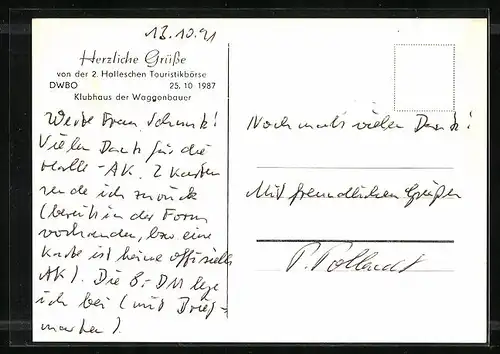 13.10.91
Herzliche Grüße
von der 2. Halleschen Touristikbörse
DWBO 25.10 1987
Klubhaus der Waggonbauer
Werte Frau Schunk!
Vielen Dank für die
Halle-AK. 2 Karten
sende ich zurück
(bereits in der Form
vorhanden, bzw eine
Karte ist keine offizielle
AK). Die 8,- DM lege
ich bei (mit Brief-
marken).
Nochmals vielen Dank!
Mit freundlichen Grüßen
P. Pollandt